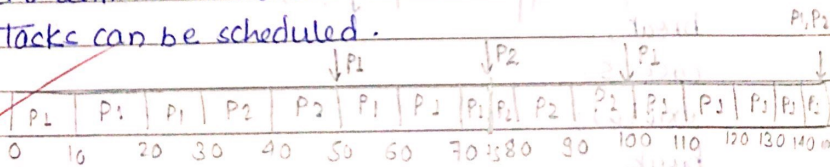 tacks can be scheduled.
P1, P2
P1 P2 P1
P1 P1 P1 P2 P2 P1 P1 P1 P2 P2 P2 P1 P1 P1 P1
0 10 20 30 40 50 60 70 75 80 90 100 110 120 130 140